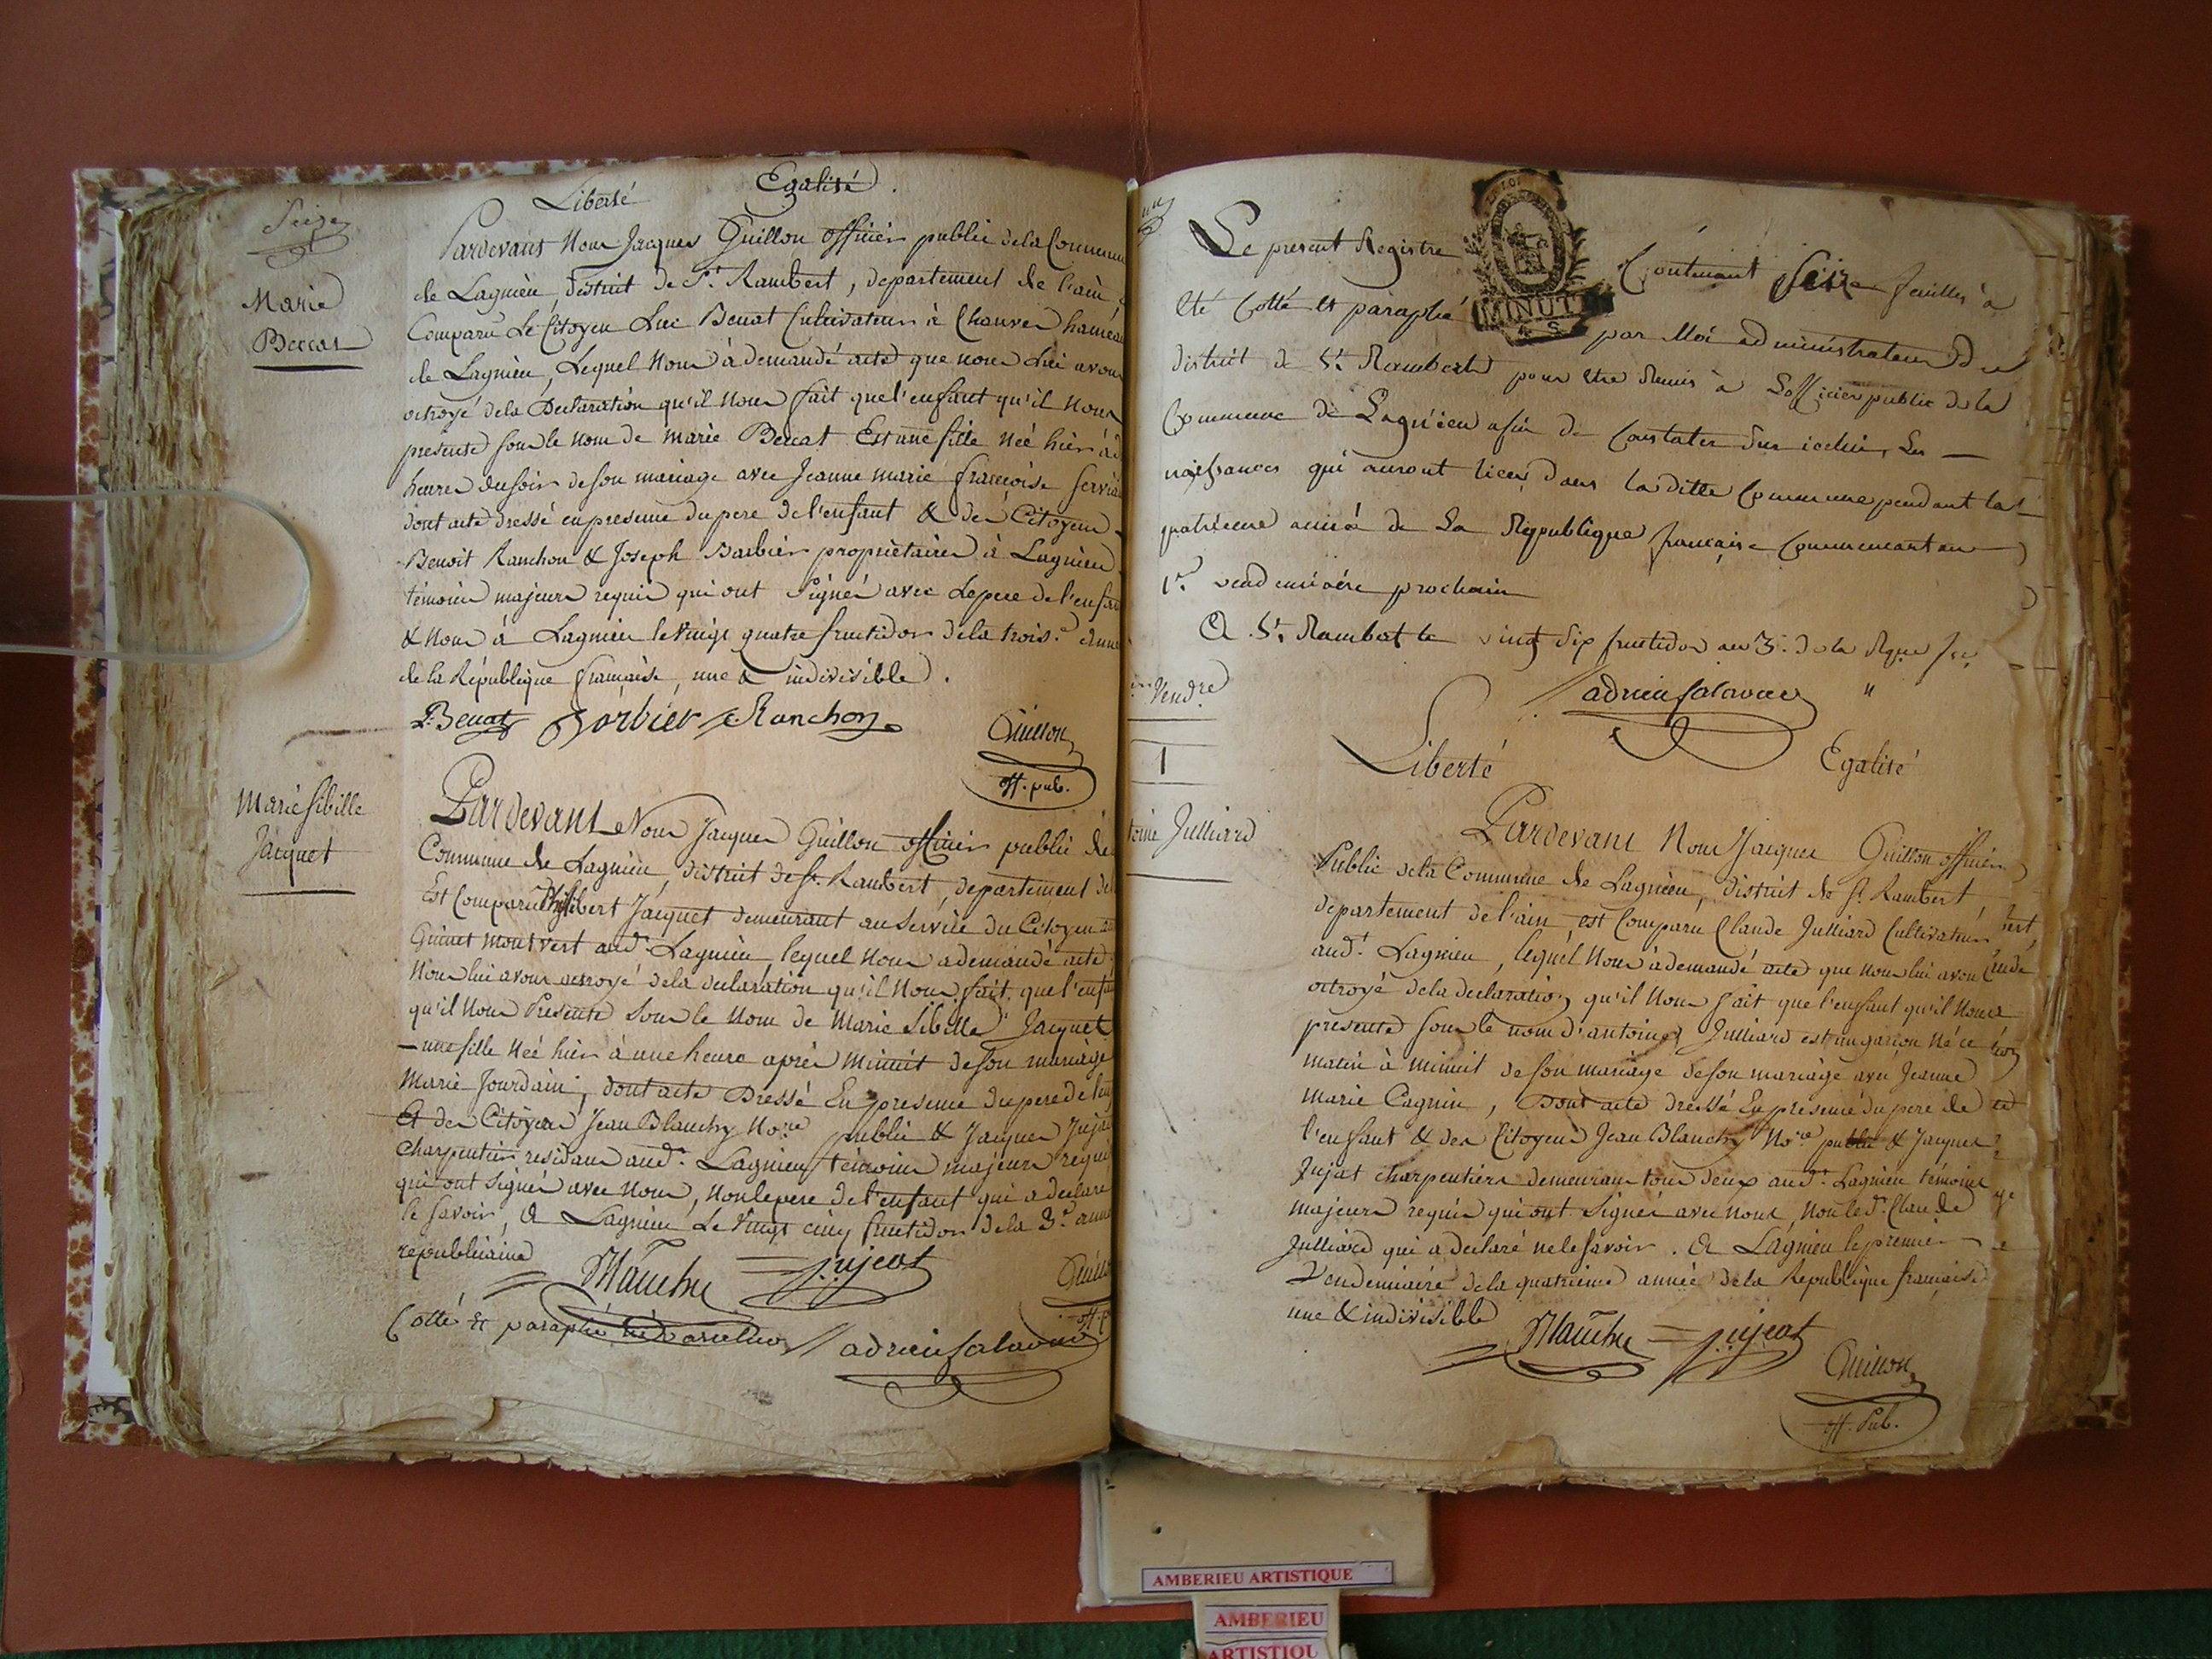 Seize
Liberté Egalité.
Marie
Beccat
Pardevant Nous Jacques Guillon officier public de la Commune
de Lagnieu, district de St. Rambert, departement de l'ain,
Comparu Le Citoyen Luc Benat Cultivateur à Chanves hameau
de Lagnieu, Lequel Nous à demandé acte que nous Lui avons
octroyé de la Declaration qu'il Nous fait que l'enfant qu'il Nous
presente sous le nom de marie Beccat Est une fille Neé hier à
heures du soir de son mariage avec Jeanne marie francoise
dont acte dressé en presence du pere de l'enfant & des Citoyens
Benoit Ranchon & Joseph Barbier propriétaires à Lagnieu
témoins majeurs requis qui ont Signés avec Le pere de l'enfant
& Nous à Lagnieu le vingt quatre fructidor de la trois.e année
de la République francaise, une & indivisible.
L. Benat Barbier Ranchon
Guillon
off. pub.
Marie Sibille
Jacquet
Pardevant Nous Jacques Guillon officier public de
Commune de Lagnieu, district de St. Rambert, departement de
Est Comparu Philibert Jacquet demeurant au Service du Citoyen
Guinet montvert aud.t Lagnieu lequel Nous a demandé acte
Nous lui avons octroyé de la declaration qu'il Nous fait, que l'enfant
qu'il Nous Presente sous le Nom de Marie Sibille Jacquet
une fille Neé hier à une heure après Minuit de son mariage
Marie Jourdain, dont acte Dressé En presence du pere de
Et des Citoyens Jean Blanchy No.re public & Jacques Jujat
charpentier residans aud.t Lagnieu témoins majeurs requis
qui ont signés avec Nous, Non le pere de l'enfant qui a declaré
le savoir, A Lagnieu Le Vingt cinq fructidor de la 3.e année
republicaine
Blanchy jujeat
Guillon
off. p
Cotté et paraphé
adrien salavuar
Le present Registre Contenant Seize feuilles à
été Cotté et paraphé par Moi administrateur du
MINUTE
district de St. Rambert pour etre Remis à L'officier public de la
Commune de Lagnieu afin de Constater sur icelui, Les
naissances qui auront lieu dans la ditte Commune pendant la
quatrieme année de La Republique francaise Commencant au
1.er vendemiaire prochain
A St. Rambert le vingt six fructidor an 3.e de la Rque fse
adrien salavuar
Vend.re
1
toine Julliard
Liberté Egalité
Pardevant Nous Jacques Guillon officier
Public de la Commune de Lagnieu, district de St. Rambert,
departement de l'ain, est Comparu Claude Julliard Cultivateur
aud.t Lagnieu, lequel Nous à demandé acte que nous lui avons
octroyé de la declaration qu'il Nous fait que l'enfant qu'il Nous
presente sous le nom d'antoine Julliard est un garçon Né ce
matin à minuit de son mariage de son mariage avec Jeanne
Marie Cagnin, Dont acte dressé En presence du pere de
l'enfant & des Citoyens Jean Blanchy No.re public & Jacques
Jujat charpentier demeurans tous deux aud.t Lagnieu témoins
majeurs requis qui ont Signés avec Nous, Non le d.t Claude
Julliard qui a declaré ne le savoir. A Lagnieu le premier
Vendemiaire de la quatrieme année de la Republique francaise
une & indivisible
Blanchy jujeat
Guillon
off. Pub.
AMBERIEU ARTISTIQUE
AMBERIEU
ARTISTIQU